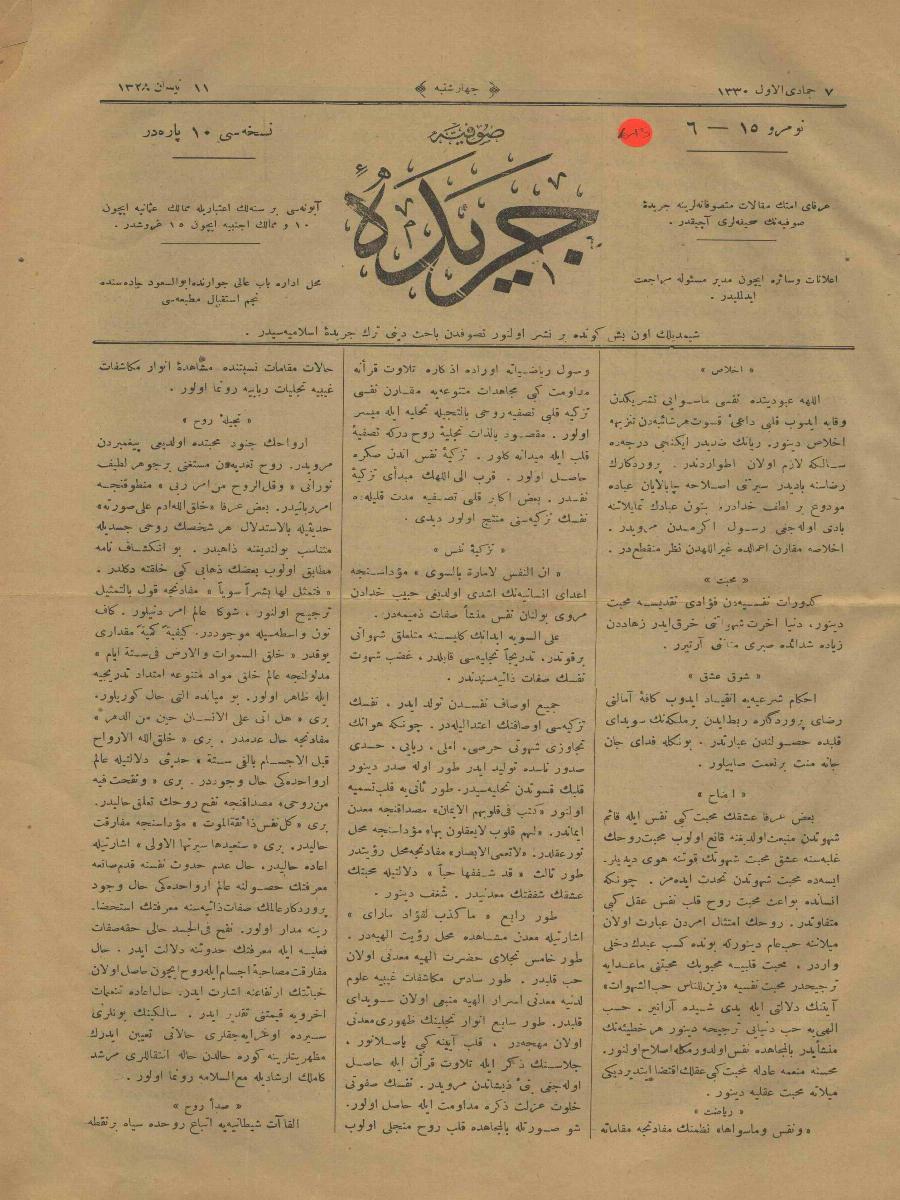 ٧ جمادى الاول ١٣٣٠
﴿ چهارشنبه ﴾
١١ نيسان ١٣٢٨
نومرو ١٥ — ٦
صوفيه
جريدهٔ
نسخه‌سى ١٠ پاره‌در
عرفاى امتك مقالات متصوفانه‌لرينه جريدهٔ
صوفيه‌نك صحيفه‌لرى آچيقدر .
اعلانات وسائره ايچون مدير مسئوله مراجعت
ايدلليدر .
آبونه‌سى بر سنه‌لك اعتباريله ممالك عثمانيه ايچون
١٠ و ممالك اجنبيه ايچون ١٥ غروشدر .
محل اداره باب عالى جوارنده ابوالسعود جاده‌سنده
نجم استقبال مطبعه‌سى
شيمديلك اون بش كونده بر نشر اولنور تصوفدن باحث دينى ترك جريدهٔ اسلاميه‌سيدر .
« اخلاص »
اللهه عبوديتده نفسى ماسوايى تشريكدن
وقايه ايدوب قلبى داعىٔ قسوت هر شائبه‌دن تنزيهه
اخلاص دينور. ريانك ضديدر ايكنجى درجه‌ده
سالكه لازم اولان اطواردندر . پروردكارك
رضاسنه باديدر سيرتنى اصلاحه چابالايان عباده
مودوع بر لطف خدادر . بتون عبادك تمايلاتنه
بادى اوله‌جغى رسول اكرمدن مرويدر .
اخلاصه مقارن اعمالده غير اللهدن نظر منقطع‌در .
« محبت »
كدورات نفسيه‌دن فؤادى تقديسه محبت
دينور ، دنيا اخرت شهواتنى خرق ايدر زهاددن
زياده شدائده صبرى آرتيرر .
« شوق عشق »
احكام شرعيه‌يه انقياد ايدوب كافهٔ آمالنى
رضاى پروردگاره ربط ايدن بر ملكه‌نك سويداى
قلبده حصولندن عبارتدر . بونكله فداى جان
جانه منت بر نعمت صاييلور .
« ايضاح »
بعض عرفا عشقك محبت كبى نفس ايله قائم
شهوتدن منبعث اولديغنه قانع اولوب محبت روحك
غلبه‌سنه عشق محبت شهوتك قوتنه هوى ديديلر.
ايسه‌ده محبت شهوتدن تحدث ايده‌مز . چونكه
انسانده بواعث محبت روح قلب نفس عقل كبى
متفاوتدر . روحك امتثال امردن عبارت اولان
ميلاننه حب عام دينوركه بونده كسب عبدك دخلى
واردر . محبت قلبيه محبوبك محبتنى ماعدايه
ترجيحدر محبت نفسيه «زين للناس حب الشهوات»
آيتك دلالتى ايله يدى شيده آرانير . حسب
الهى‌يه حب دنيايى ترجيحه دينور هر خطيئه‌نك
منشأيدر بالمجاهده نفس اولدورمكله اصلاح اولنور.
محسنه منعمه عادله محبت كبى عقلك اقتضا ايتديرديكى
ميلانه محبت عقليه دينور .
« رياضت »
« ونفس وماسواها » نظمنك مفادنجه مقاماته
وسول رياضياته اوراده اذكاره تلاوت قرآنه
مداومت كبى مجاهدات متنوعه‌يه مقارن نفسى
تزكيه قلبى تصفيه روحى بالتجيله تحليه ايله ميسر
اولور . مقصود بالذات تجليهٔ روح دركه تصفيهٔ
قلب ايله ميدانه كلور . تزكيهٔ نفس اندن صكره
حاصل اولور . قرب الى اللهك مبدأى تزكيهٔ
نفسدر . بعض اكابر قلبى تصفيه مدت قليله‌ده
نفسك تزكيه‌سنى منتج اولور ديدى .
« تزكيهٔ نفس »
« ان النفس لامارة بالسوى » مؤداسنجه
اعداى انسانيه‌نك اشدى اولديغى حبيب خدادن
مروى بولنان نفس منشأ صفات ذميمه‌در .
على السويه ابدانك كليسنه متعلق شهواتى
برقوتدر ، تدريجاً تجليه‌سى قابلدر ، غضب شهوت
نفسك صفات ذاتيه‌سيدندر .
جميع اوصاف نفسدن تولد ايدر . نفسك
تزكيه‌سى اوصافنك اعتدالیله‌در. چونكه هوانك
تجاوزى شهوتى حرصى ، املى ، ريايى ، حسدى
صدور ناسده توليد ايدر طور اوله صدر دينور
قلبك قسوتدن تجليه‌سيدر. طور ثانى‌يه قلب تسميه
اولنور «كتب فى قلوبهم الايمان» مصداقنجه معدن
ايماندر. «لهم قلوب لايعقلون بها» مؤداسنجه محل
نور عقلدر. «لاتعمى الابصار» مفادنجه محل رؤيتدر
طور ثالث « قد شغفها حباً » دلالتيله محبتك
عشقك شفقتك معدنيدر . شغف دينور .
طور رابع « ماكذب لفؤاد ماراى »
اشارتيله معدن مشاهده محل رؤيت الهيه‌در .
طور خامس تجلاى حضرت الهيه معدنى اولان
حب قلبدر . طور سادس مكاشفات غيبيه علوم
لدنيه معدنى اسرار الهيه منبعى اولان سويداى
قلبدر. طور سابع انوار تجليلنك ظهورى معدنى
اولان مهجه‌در ، قلب آيينه كبى پاسلانور ،
جلاسنك ذكر ايله تلاوت قرآن ايله حاصل
اوله‌جغى نبى ذيشاندن مرويدر . نفسك صفوتى
خلوت عزلت ذكره مداومت ايله حاصل اولور.
شو صورتله بالمجاهده قلب روح منجلى اولوب
حالات مقامات نسبتنده مشاهدهٔ انوار مكاشفات
غيبيه تجليات ربانيه رونما اولور .
« تجليهٔ روح »
ارواحك جنود مجنده اولديغى پيغمبردن
مرويدر. روح تغديه‌دن مستغنى بر جوهر لطيف
نورانى « وقل الروح من امر ربى » منطوقنجه
امر ربانيدر. بعض عرفا «خلق الله ادم على صورته»
حديثيله بالاستدلال هر شخصك روحى جسديله
متناسب بولنديغنه ذاهبدر . بو انكشاف تامه
مطابق اولوب بعضك ذهابى كبى خلقته دكلدر .
« فتمثل لها بشراً سوياً » مفادنجه قول بالتمثيل
ترجيح اولنور ، شوكا عالم امر دنيلور . كاف
نون واسطه‌سيله موجوددر . كيفيةً كميةً مقدارى
يوقدر « خلق السموات والارض فى ستة ايام »
مدلولنجه عالم خلق مواد متنوعه امتداد تدريجيه
ايله ظاهر اولور . بو ميانده التى حال كوريلور.
برى « هل اتى على الانسان حين من الدهر »
مفادنجه حال عدمدر . برى « خلق الله الارواح
قبل الاجسام بالفى سنة » حديثى دلالتيله عالم
ارواحده‌كى حال وجوددر . برى « ونفخت فيه
من روحى » مصداقنجه نفخ روحك تعلق حاليدر.
برى «كل نفس ذائقة الموت» مؤداسنجه مفارقت
حاليدر. برى « سنعيدها سيرتها الاولى » اشارتيله
اعاده حاليدر. حال عدم حدوث نفسنه قدم صانعه
معرفتك حصولنه عالم ارواحده‌كى حال وجود
پروردكار عالمك صفات ذاتيه‌سنه معرفتك استحضا-
رينه مدار اولور. نفخ فى الجسد حالى حقه صفات
فعليه ايله معرفتك حدوثنه دلالت ايدر . حال
مفارقت مصاحبهٔ اجسام ايله روح ايچون حاصل اولان
خباثتك ارتفاعنه اشارت ايدر. حال اعاده تنعمات
اخرويه قيمتنى تقدير ايدر . سالكينك بونلرى
سيرده اوغرايه‌جقلرى حالاتى تعيين ايدرك
مظهريتلرينه كوره حالدن حاله انتقاللرى مرشد
كاملك ارشاديله مع السلامه رونما اولور .
« صدأ روح »
القاآت شيطانيه‌يه اتباع روحده سياه بر نقطه